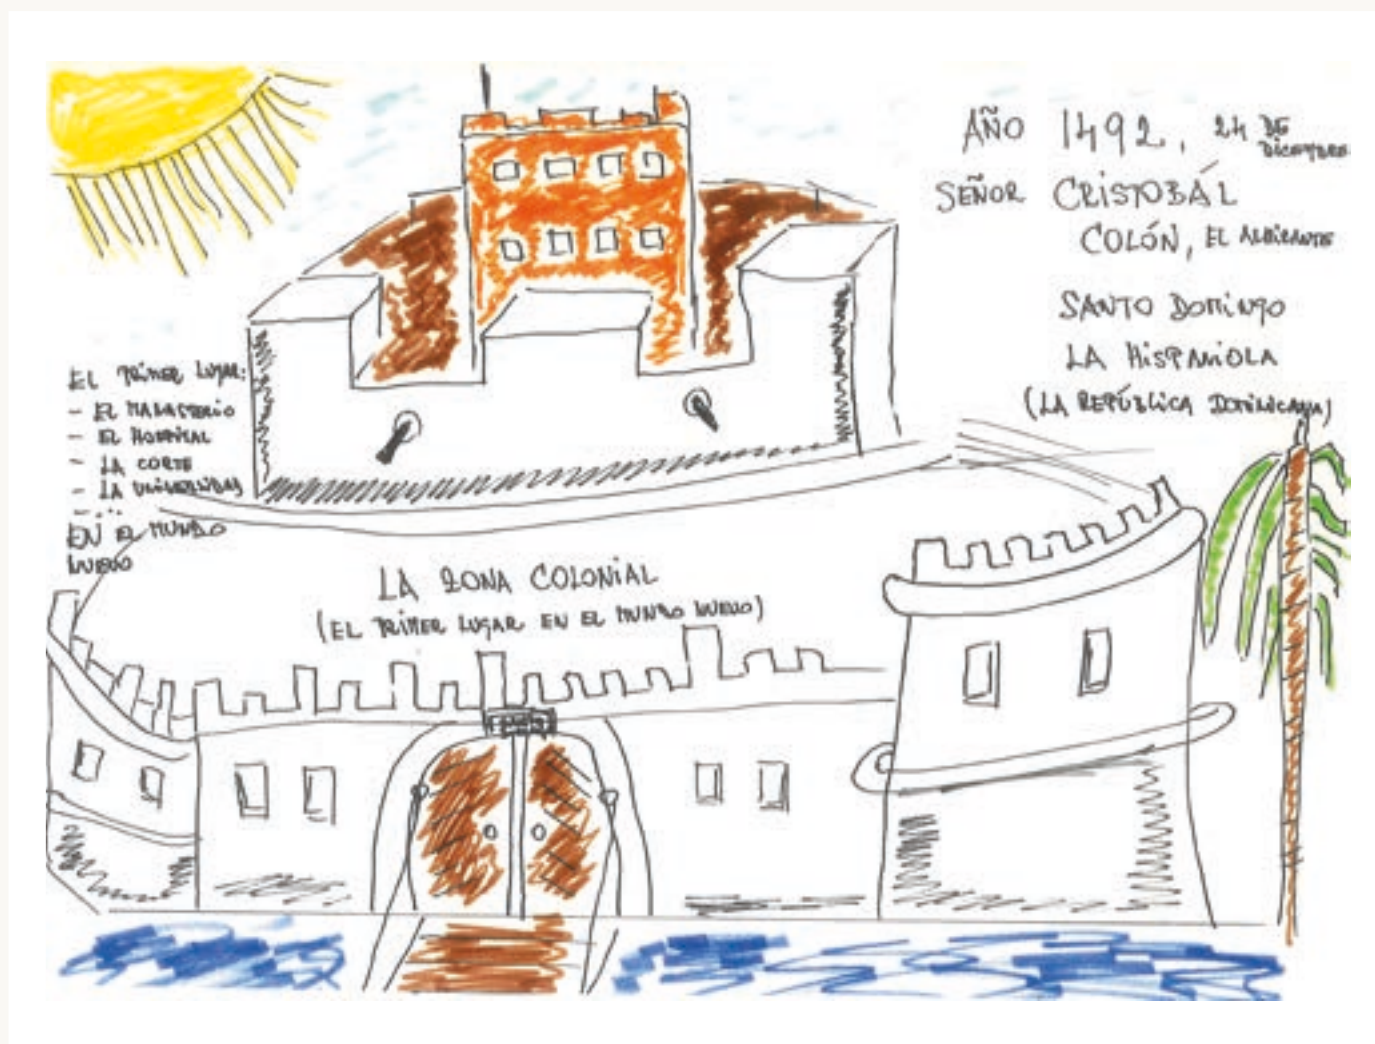 AÑO 1492, 24 DE DICIEMBRE
SEÑOR CRISTOBÁL
COLÓN, EL ALMIRANTE
SANTO DOMINGO
LA HISPANIOLA
(LA REPÚBLICA DOMINICANA)
EL PRIMER LUGAR:
- EL MANASTERIO
- EL HOSPITAL
- LA CORTE
- LA UNIVERSIDAD
- ...
EN EL MUNDO
NUEVO
LA ZONA COLONIAL
(EL PRIMER LUGAR EN EL MUNDO NUEVO)